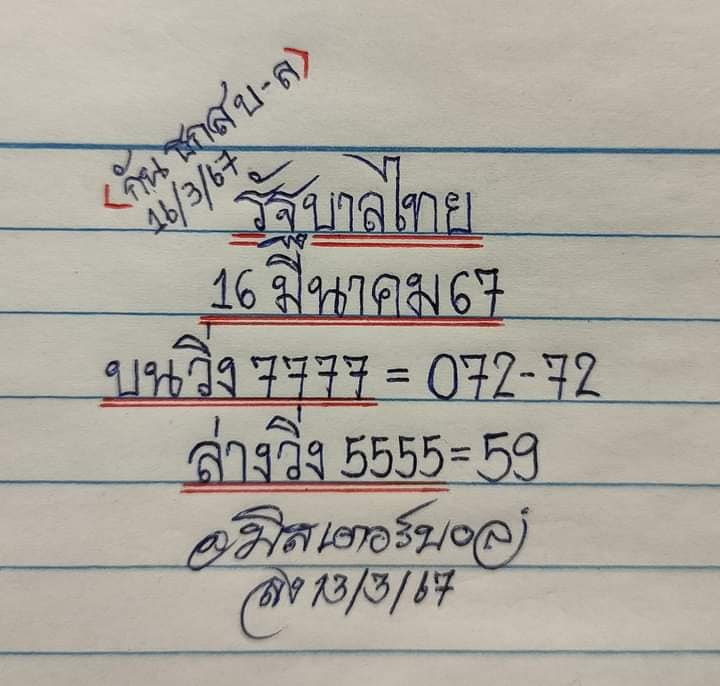 กัน ชกส บ-ล
16/3/67
รัฐบาลไทย
16 มีนาคม 67
บนวิ่ง 7777 = 072-72
ล่างวิ่ง 5555 = 59
มิสเตอร์บอล
ส่ง 13/3/67